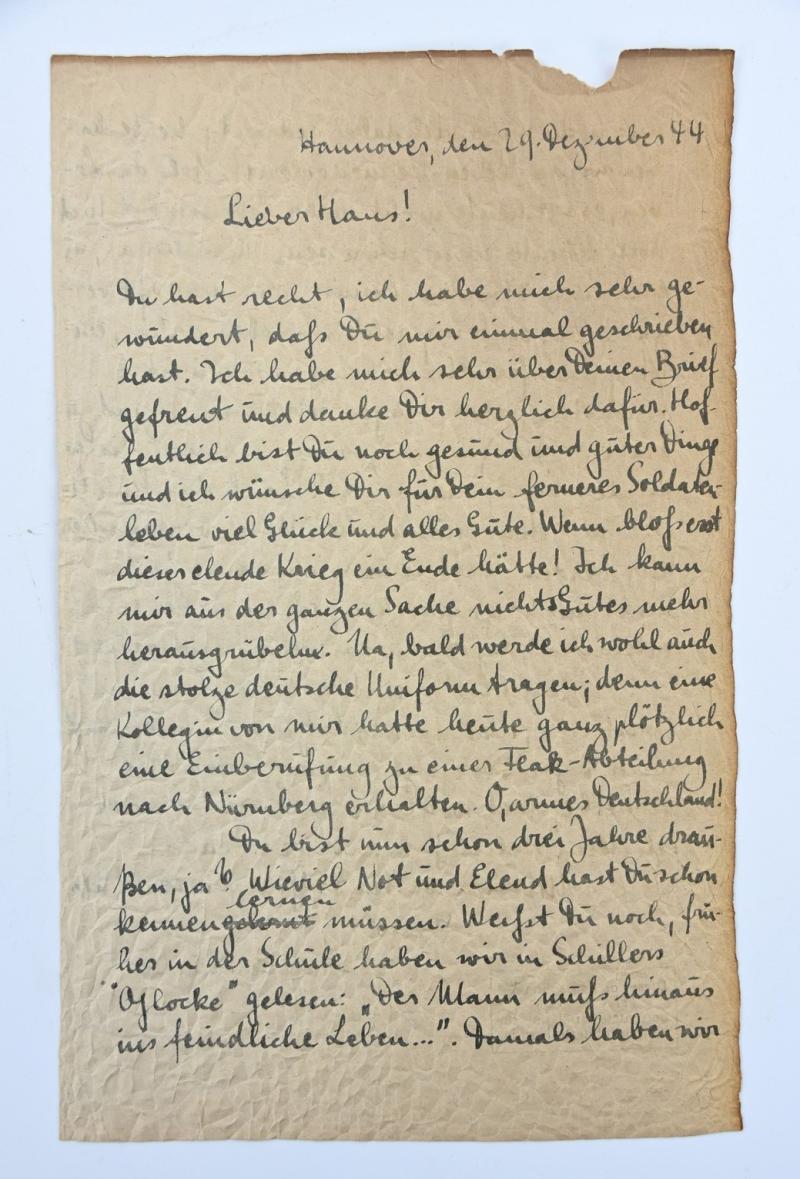 Hannover, den 29. Dezember 44
Lieber Hans!
Du hast recht, ich habe mich sehr ge-
wundert, daß Du mir einmal geschrieben
hast. Ich habe mich sehr über Deinen Brief
gefreut und danke Dir herzlich dafür. Hof-
fentlich bist Du noch gesund und guter Dinge
und ich wünsche Dir für Dein ferneres Soldaten-
leben viel Glück und alles Gute. Wenn bloß erst
dieser elende Krieg ein Ende hätte! Ich kann
mir aus der ganzen Sache nichts Gutes mehr
herausgrübeln. Na, bald werde ich wohl auch
die stolze deutsche Uniform tragen; denn eine
Kollegin von mir hatte heute ganz plötzlich
eine Einberufung zu einer Flak-Abteilung
nach Nürnberg erhalten. O, armes Deutschland!
Du bist nun schon drei Jahre drau-
ßen, ja? Wieviel Not und Elend hast Du schon
kennen lernen müssen. Weißt Du noch, frü-
her in der Schule haben wir in Schillers
"Glocke" gelesen: „Der Mann muß hinaus
ins feindliche Leben...". Damals haben wir